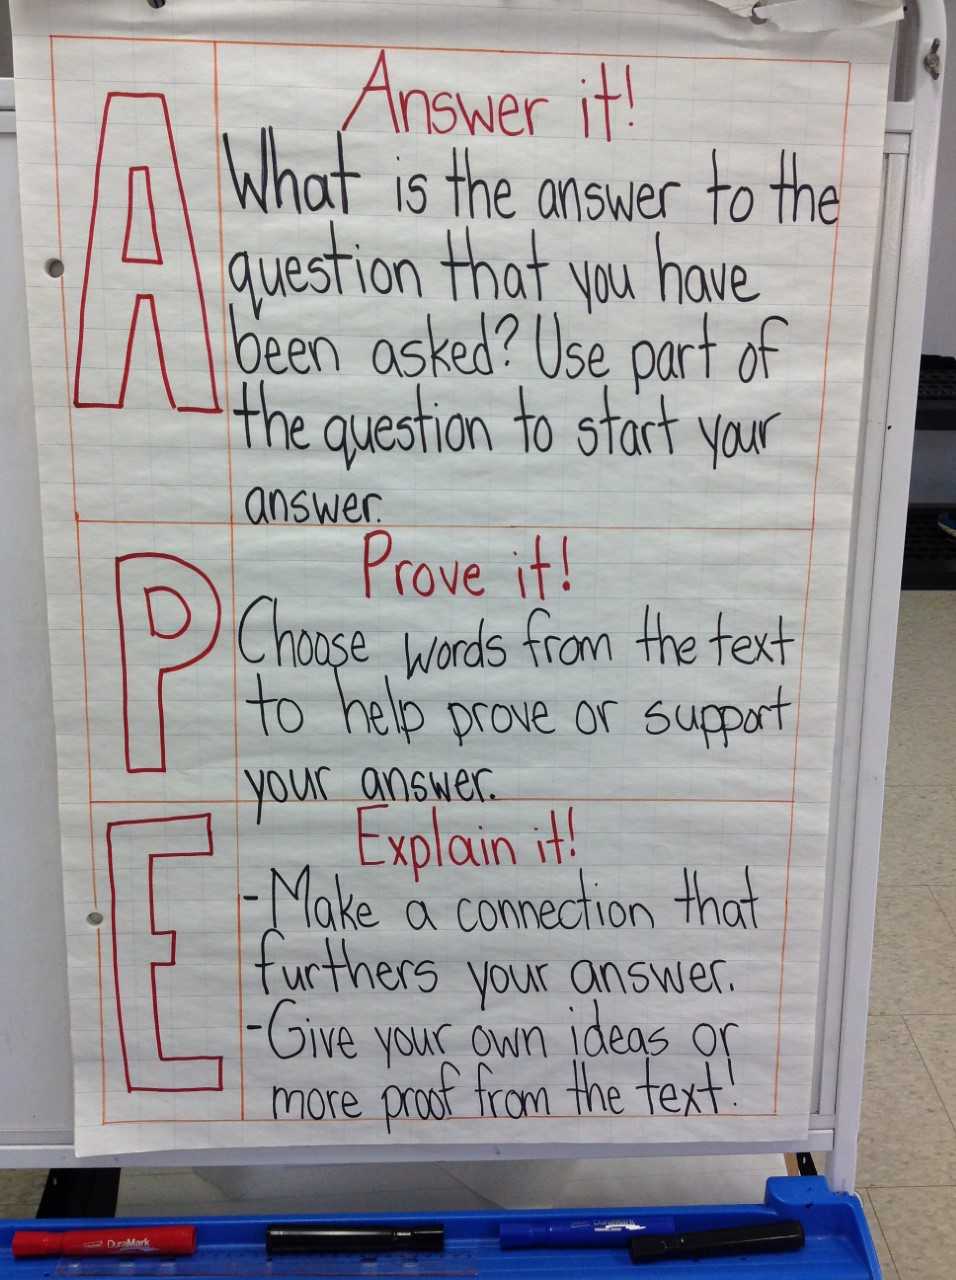 A
Answer it!
What is the answer to the
question that you have
been asked? Use part of
the question to start your
answer.
P
Prove it!
Choose words from the text
to help prove or support
your answer.
E
Explain it!
-Make a connection that
furthers your answer.
-Give your own ideas or
more proof from the text!
DuraMark
DuraMark